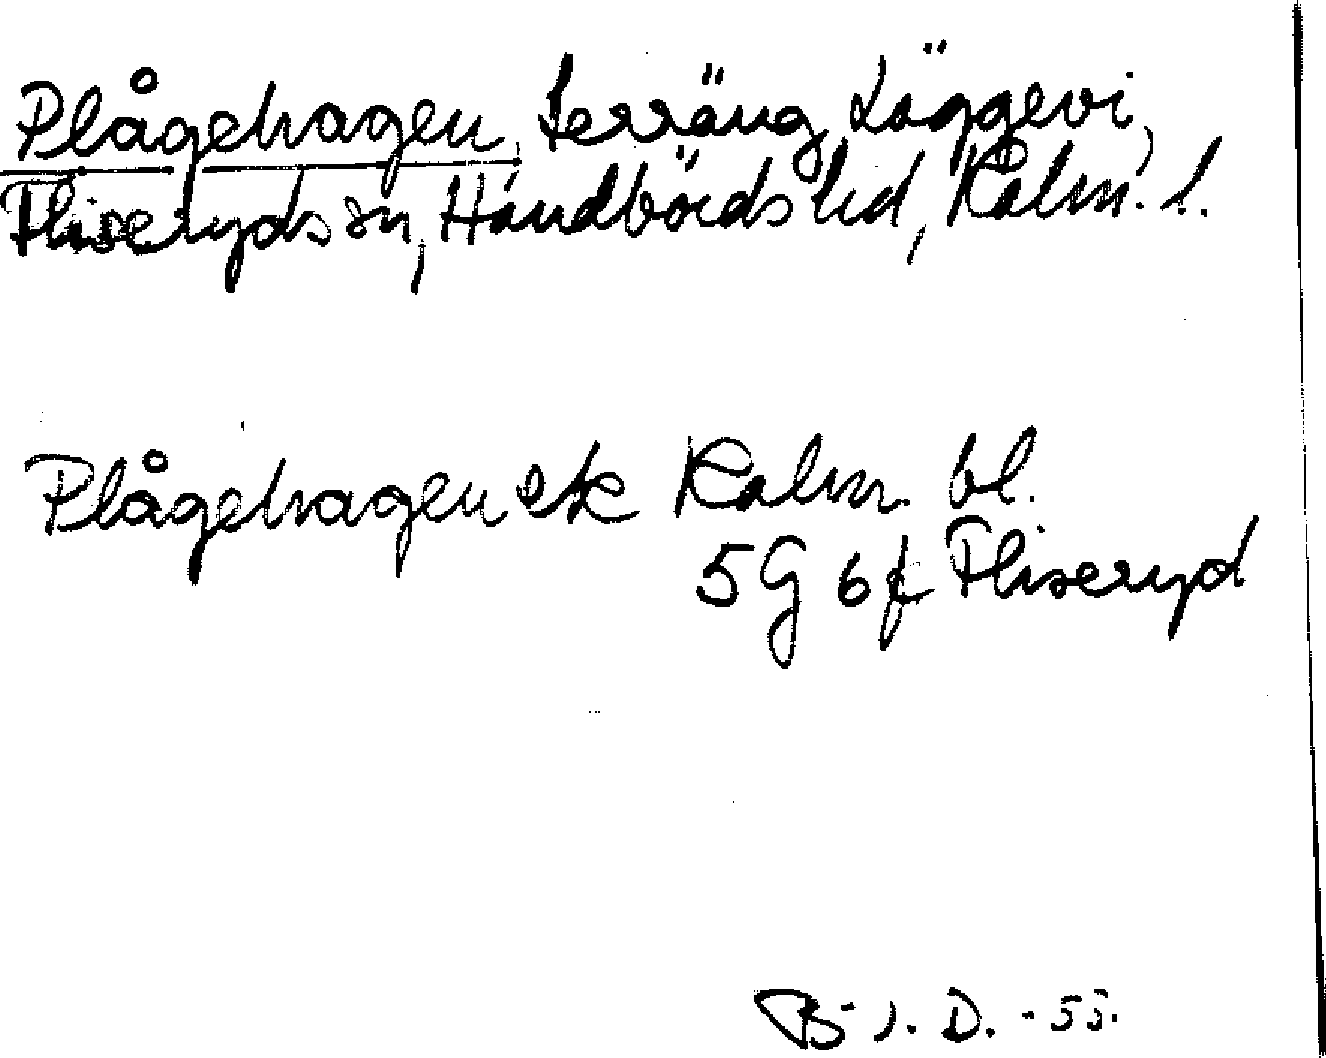 Plågehagen, terräng Läggevi,
Fliseryds sn, Handbörds hd, Kalm. l.
Plågehagen ek Kalm. bl.
5G 6f Fliseryd
B-J. D. -55.